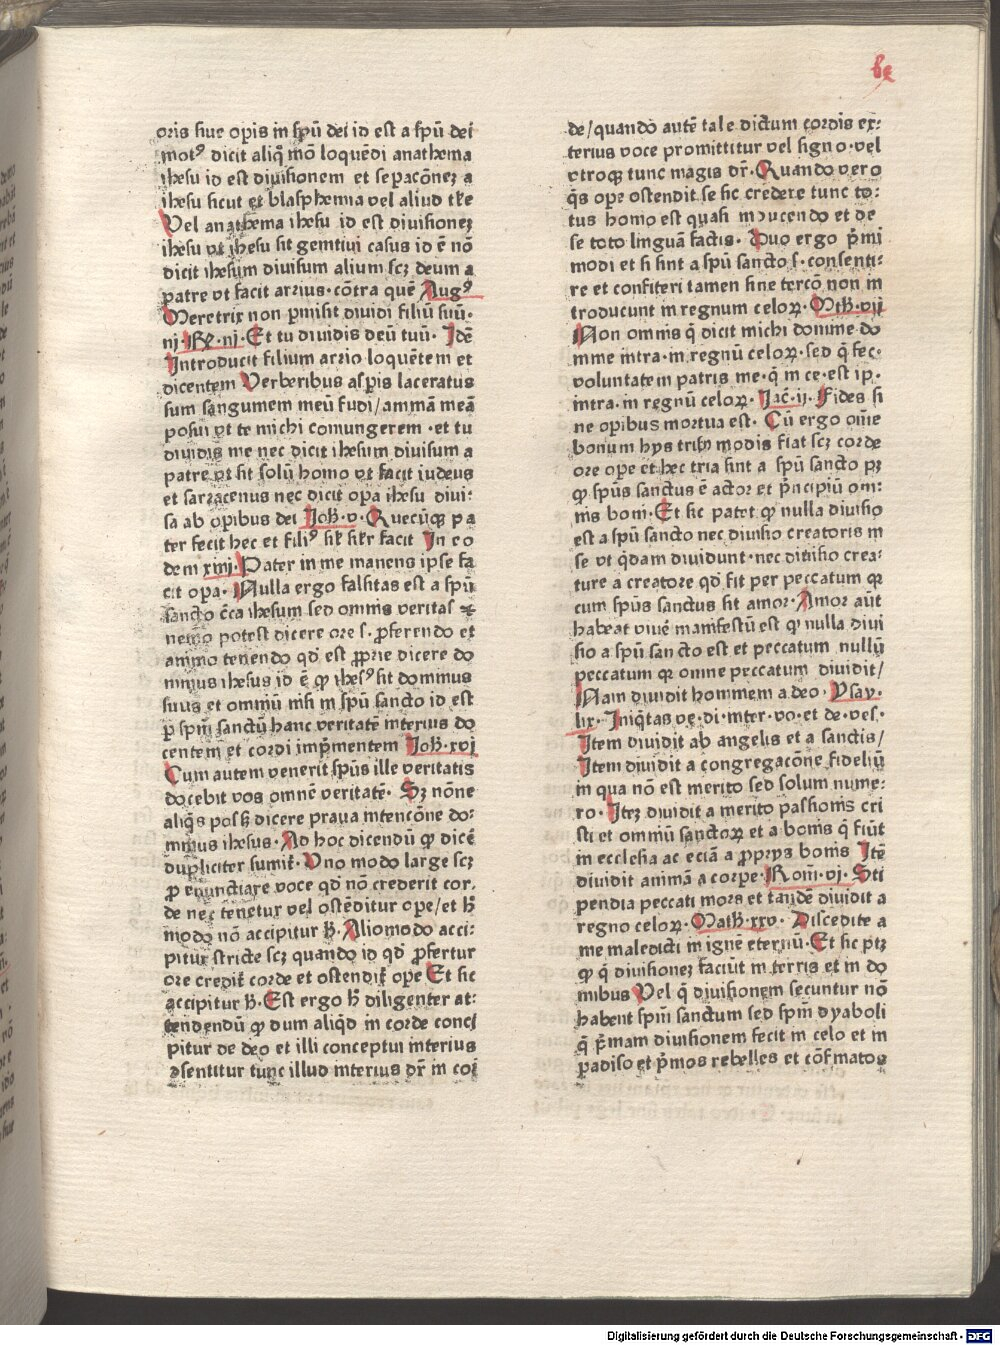 oris siue oꝑis in spū dei id est a spū dei
motꝰ dicit aliqͥ mō loquēdi anathema
ihesu id est diuisionem et sepacōneꝫ a
ihesu sicut et blasphemia vel aliud tłe
Vel anathema ihesu id est diuisioneꝫ
ihesu vt ihesu sit genitiui casus id ē nō
dicit ihesum diuisum alium scꝫ deum a
patre vt facit arrius · cōtra quē Augꝰ
Meretrix non ꝑmisit diuidi filiū suū ·
iij · Rꝝ · iij · Et tu diuidis deū tuū · Idē
Introducit filium arrio loquētem et
dicentem Verberibus asꝑis laceratus
sum sanguinem meū fudi / animā meā
posui vt te michi coniungerem · et tu
diuidis me nec dicit ihesum diuisum a
patre vt sit solū homo vt facit iudeus
et sarracenus nec dicit oꝑa ihesu diui:
sa ab oꝑibus dei Joh̄ · v · Quecūqꝫ pa
ter fecit hec et filiꝰ sił silr facit In eo
dem xiiij · Pater in me manens ipse fa
cit oꝑa · Nulla ergo falsitas est a spū
sancto c̄ca ihesum sed omnis veritas ⁊
nemo potest dicere ore s · ꝓferendo et
animo tenendo qd̓ est ꝓprie dicere do
minus ihesus id ē ꝙ ihesꝰ sit dominus
suus et omniū nisi in spū sancto id est
ꝑ spm̄ sanctū hanc veritatē interius do
centem et cordi impͥmentem Joh̄ · xvj
Cum autem venerit spūs ille veritatis
docebit vos omnē veritatē · Sꝫ nōne
aliqͥs possꝫ dicere praua intencōne do:
minus ihesus · Ad hoc dicendū ꝙ dicē
dupliciter sumit̄ · Vno modo large scꝫ
ꝓ enunctiare voce qd̓ nō crederit cor ·
de nec tenetur vel ostēditur oꝑe / et h̄
modo nō accipitur h̄ · Alio modo acci:
pitur stricte scꝫ quando id qd̓ ꝓfertur
ore credit̄ corde et ostendit̄ oꝑe Et sic
accipitur h̄ · Est ergo h̄ diligenter at:
tendendū ꝙ dum aliqͥd in corde conci
pitur de deo et illi conceptui interius
ꝯsentitur tunc illud interius dr̄ in cor
de / quando autē tale dictum cordis ex:
terius voce promittitur vel signo · vel
vtroqꝫ tunc magis dr̄ · Quando vero
qͥs oꝑe ostendit se sic credere tunc to:
tus homo est quasi in ducendo et de
se toto linguā factis · Duo ergo pͥmi
modi et si sint a spū sancto s · consenti:
re et confiteri tamen sine tercō non in
troducunt in regnum celoꝝ · Mth̄ · vij
Non omnis qͥ dicit michi domine do
mine intra · in regnū celoꝝ · sed qͥ fec ·
voluntatem patris me · qͥ in ce · est ip ·
intra · in regnū celoꝝ · Jac̄ · ij · Fides si
ne oꝑibus mortua est · Cū ergo om̄e
bonum hys tribꝫ modis fiat scꝫ corde
ore oꝑe et hec tria sint a spū sancto pꝫ
ꝙ spūs sanctus ē actor et pͥncipiū om:
nis boni · Et sic patet ꝙ nulla diuisio
est a spū sancto nec diuisio creatoris in
se vt qͥdam diuidunt · nec diuisio crea:
ture a creatore qd̓ fit per peccatum qꝛ
cum spūs sanctus sit amor · Amor aūt
habeat viuē manifestū est ꝙ nulla diui
sio a spū sancto est et peccatum nullū
peccatum qꝛ omne peccatum diuidit /
Nam diuidit hominem a deo · Ysay ·
lix · Iniqͥtas ve · di · inter · vo · et de · ves ·
Item diuidit ab angelis et a sanctis /
Item diuidit a congregacōne fideliū
in qua nō est merito sed solum nume:
ro · Iteꝫ diuidit a merito passionis cri
sti et omniū sanctoꝝ et a bonis qͥ fiūt
in ecclesia ac eciā a ꝓprys bonis Itē
diuidit animā a corꝑe · Rom̄ · vj · Sti
pendia peccati mors et tandē diuidit a
regno celoꝝ · Math̄ · xxv · Discedite a
me maledicti in ignē eternū · Et sic ptꝫ
ꝙ qͥ diuisioneꝫ faciūt in terris et in do
mibus Vel qͥ diuisionem secuntur nō
habent spm̄ sanctum sed spm̄ dyaboli
qͥ pͥmam diuisionem fecit in celo et in
ꝑadiso et pͥmos rebelles et cōfirmatos
Digitalisierung gefördert durch die Deutsche Forschungsgemeinschaft - DFG